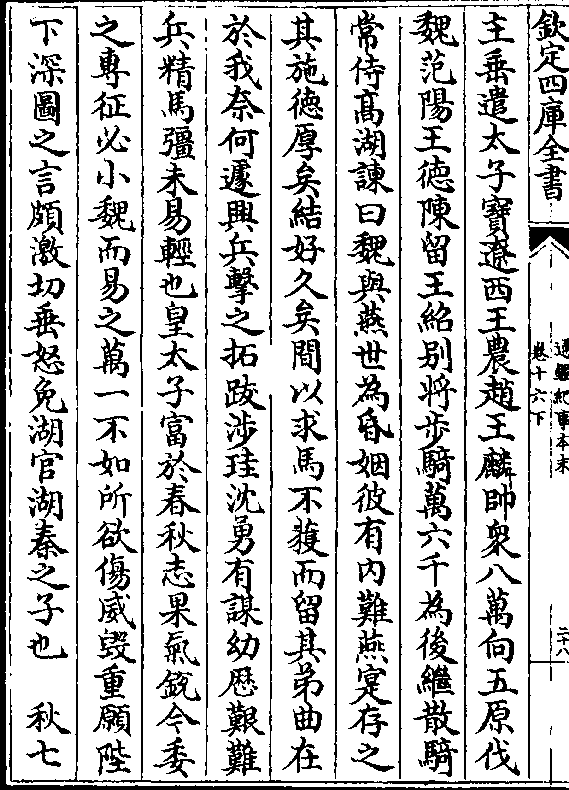 欽定四庫全書
通鑑紀事本末
卷十六下
二十八
主垂遣太子寶遼西王農趙王麟帥衆八萬向五原伐
魏范陽王德陳留王紹别將步騎萬六千為後繼散騎
常侍髙湖諫曰魏與燕世為昏姻彼有内難燕寔存之
其施徳厚矣結好久矣間以求馬不獲而留其弟曲在
於我奈何遽興兵擊之拓跋涉珪沈勇有謀幼厯艱難
兵精馬彊未易輕也皇太子富於春秋志果氣銳今委
之專征必小魏而易之萬一不如所欲傷威毁重願陛
下深圖之言頗激切垂怒免湖官湖泰之子也　秋七